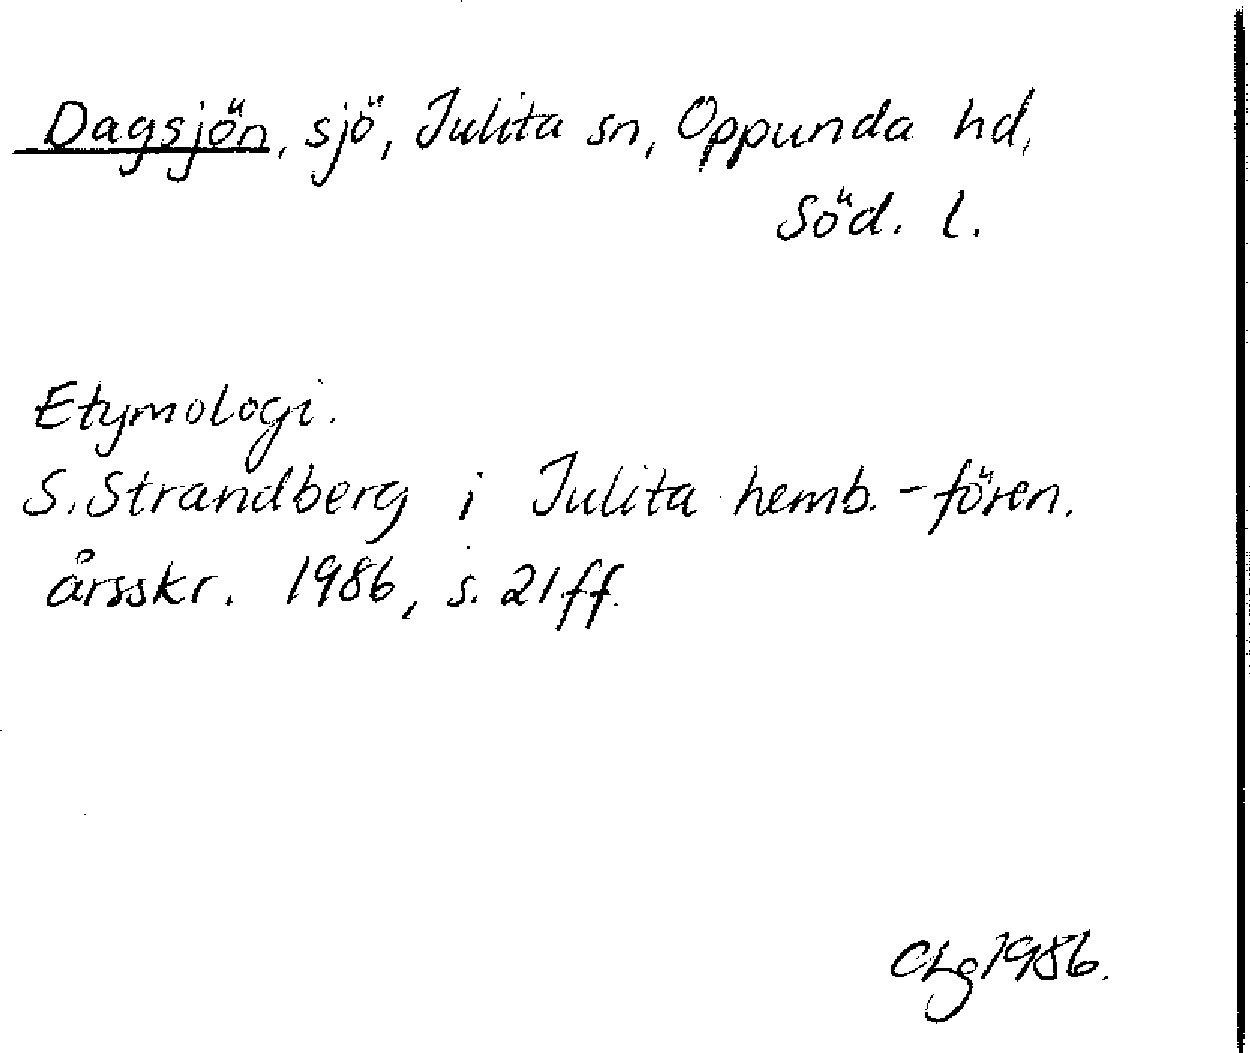 Dagsjön, sjö, Julita sn, Oppunda hd,
Söd. l.
Etymologi.
S. Strandberg i Julita hemb.-fören.
årsskr. 1986, s. 21 ff.
CLg 1986.